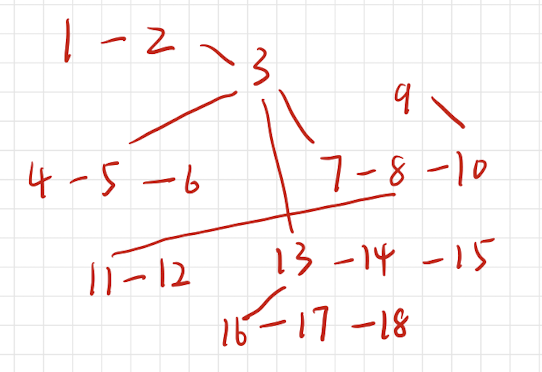 1 - 2
3
9
4 - 5 - 6
7 - 8 - 10
11 - 12
13 - 14 - 15
16 - 17 - 18